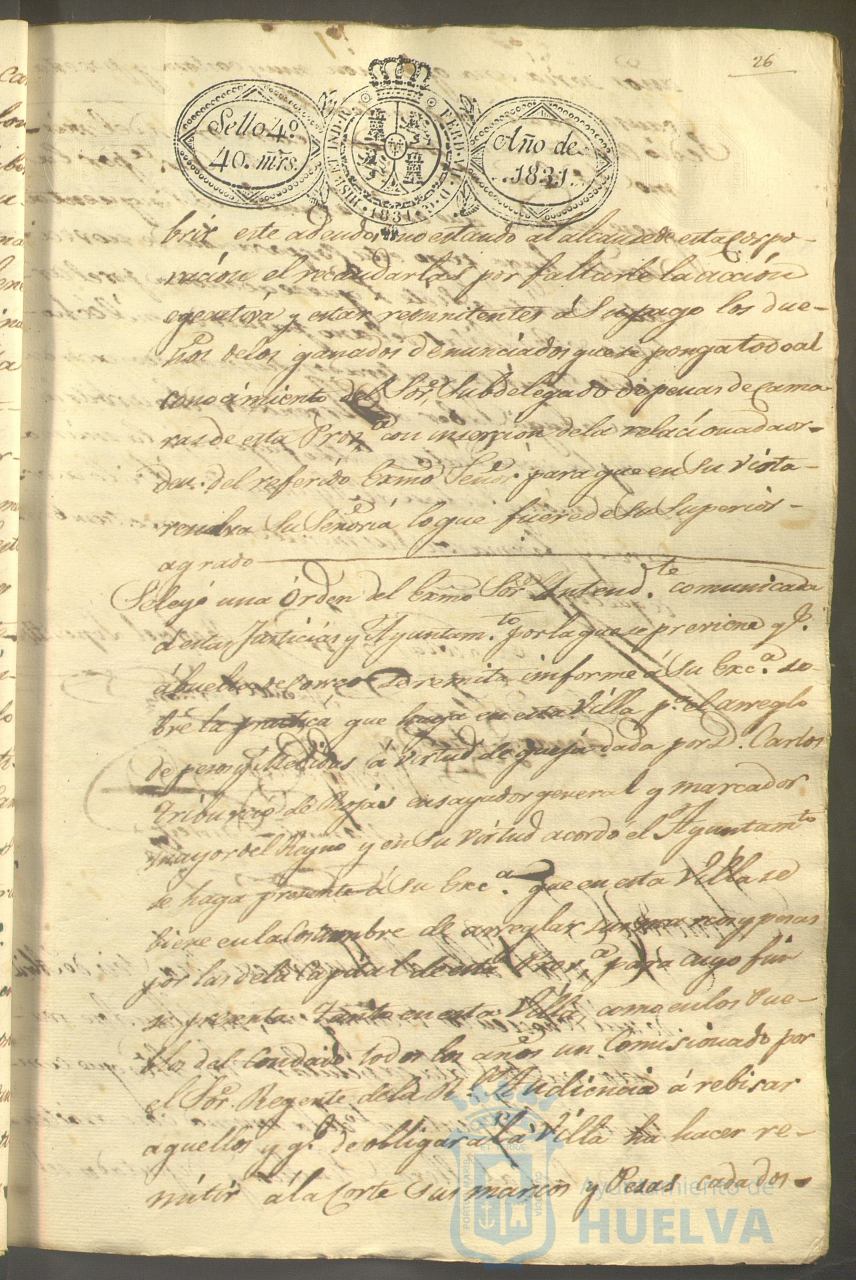 26
Sello 4º
40. mrs.
HISP. ET IND. R.
FERD. VII. D. G.
1831
Año de
1831.
brir este adeudos, no estando al alcance de esta Corpo-
racion el recaudarlas por faltarle la acción
egecutiva y estar renuitentes á Su pago los due-
ños de los ganados denunciados que se ponga todo al
conocimiento del Sor. Subdelegado de penas de Cama-
ras de esta Prov.ª con insercion de la relacionada or-
den. del referido Exmo. Señor. para que en su vista
resuelva Su Señoria lo que fuere de su Superior
agrado
Se leyó una Órden del Exmo Sor. Yntend.te comunicada
á estas Justicias y Ayuntam.to por la que se previene q.e
á buelta de correo se remita informe á Su Exc.ª so-
bre la practica que haya en esta Villa p.ª el arreglo
de pesos y Medidas á virtud de queja dada por D. Carlos
de Rojas ensayador general y marcador
mayor del Reyno y en su virtud acordó el Ayuntam.to
se haga presente á su Exc.ª que en esta Villa se
tiene en la Costumbre de arreglar sus marcos y pesas
por las de la Capital de esta Prov.ª para cuyo fin
se presenta tanto en esta Villa como en los Pue-
blos del Condado todos los años un Comisionado por
el Sor. Regente de la R.l Audiencia á rebisar
aquellos y q.e de obligar a la Villa ha hacer re-
mitir a la Corte sus marcos y Pesas cada dos
PORTUS MARIS
CUSTODIA
Ayuntamiento de
HUELVA